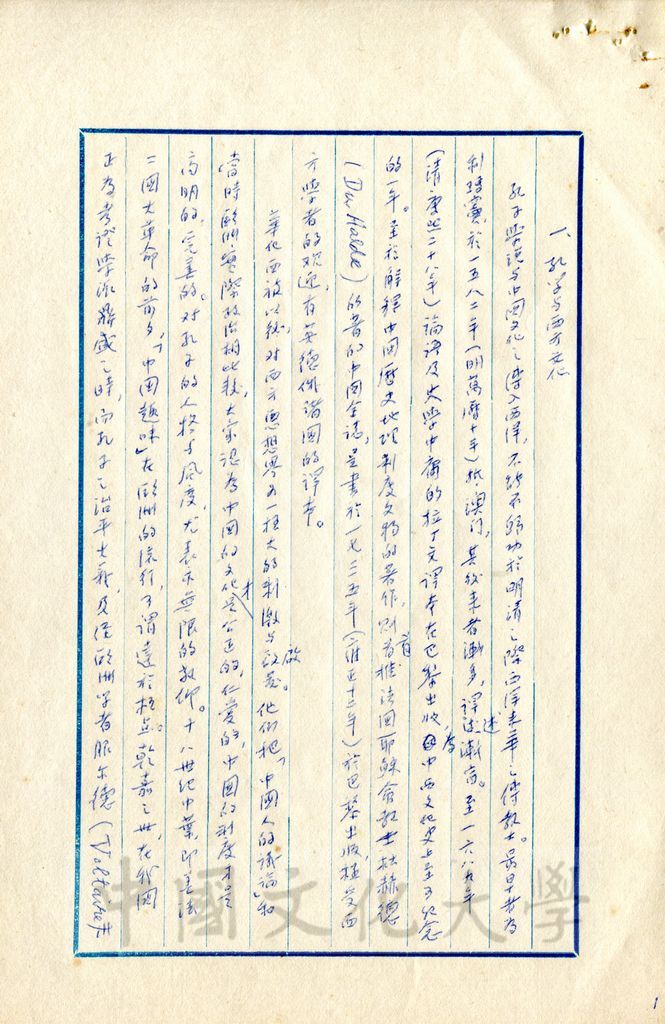 一、孔學与西方文化
孔子學說与中國文化之傳入西洋，不能不歸功於明清之際西洋來華之傳教士。最早者為
利瑪竇於一五八二年（明萬曆十年）抵澳门，其後来者漸多，譯述漸富。至一六八九年
（清康熙二十八年）論語及大學中庸的拉丁文譯本在巴黎出版，為中西文化史上至可紀念
的一年。至於解釋中國歷史地理制度文物的著作，則首推法國耶穌會教士杜赫德
（Du Halde）的著的中國全誌，是書於一七三五年（雍正十三年）於巴黎出版，極受西
方學者的欢迎，有英德俄諸國的譯本。
華化西被以後，对西方思想界为一極大的刺激与啟發。他们把「中國人的議論」和
當時歐洲實際政治相比較，大家認為中國的文化才是公正的，仁愛的，中國的制度才是
高明的，完善的。对孔子的人格与風度，尤表示無限的敬仰。十八世纪中葉，即美法
二國大革命的前夕，「中國趣味」在歐洲的流行，可謂達於極点。乾嘉之世，在我國
正為考證學派鼎盛之時，而孔子之治平大義，反從歐洲学者服尔德（Voltaire）
中國文化大學
1